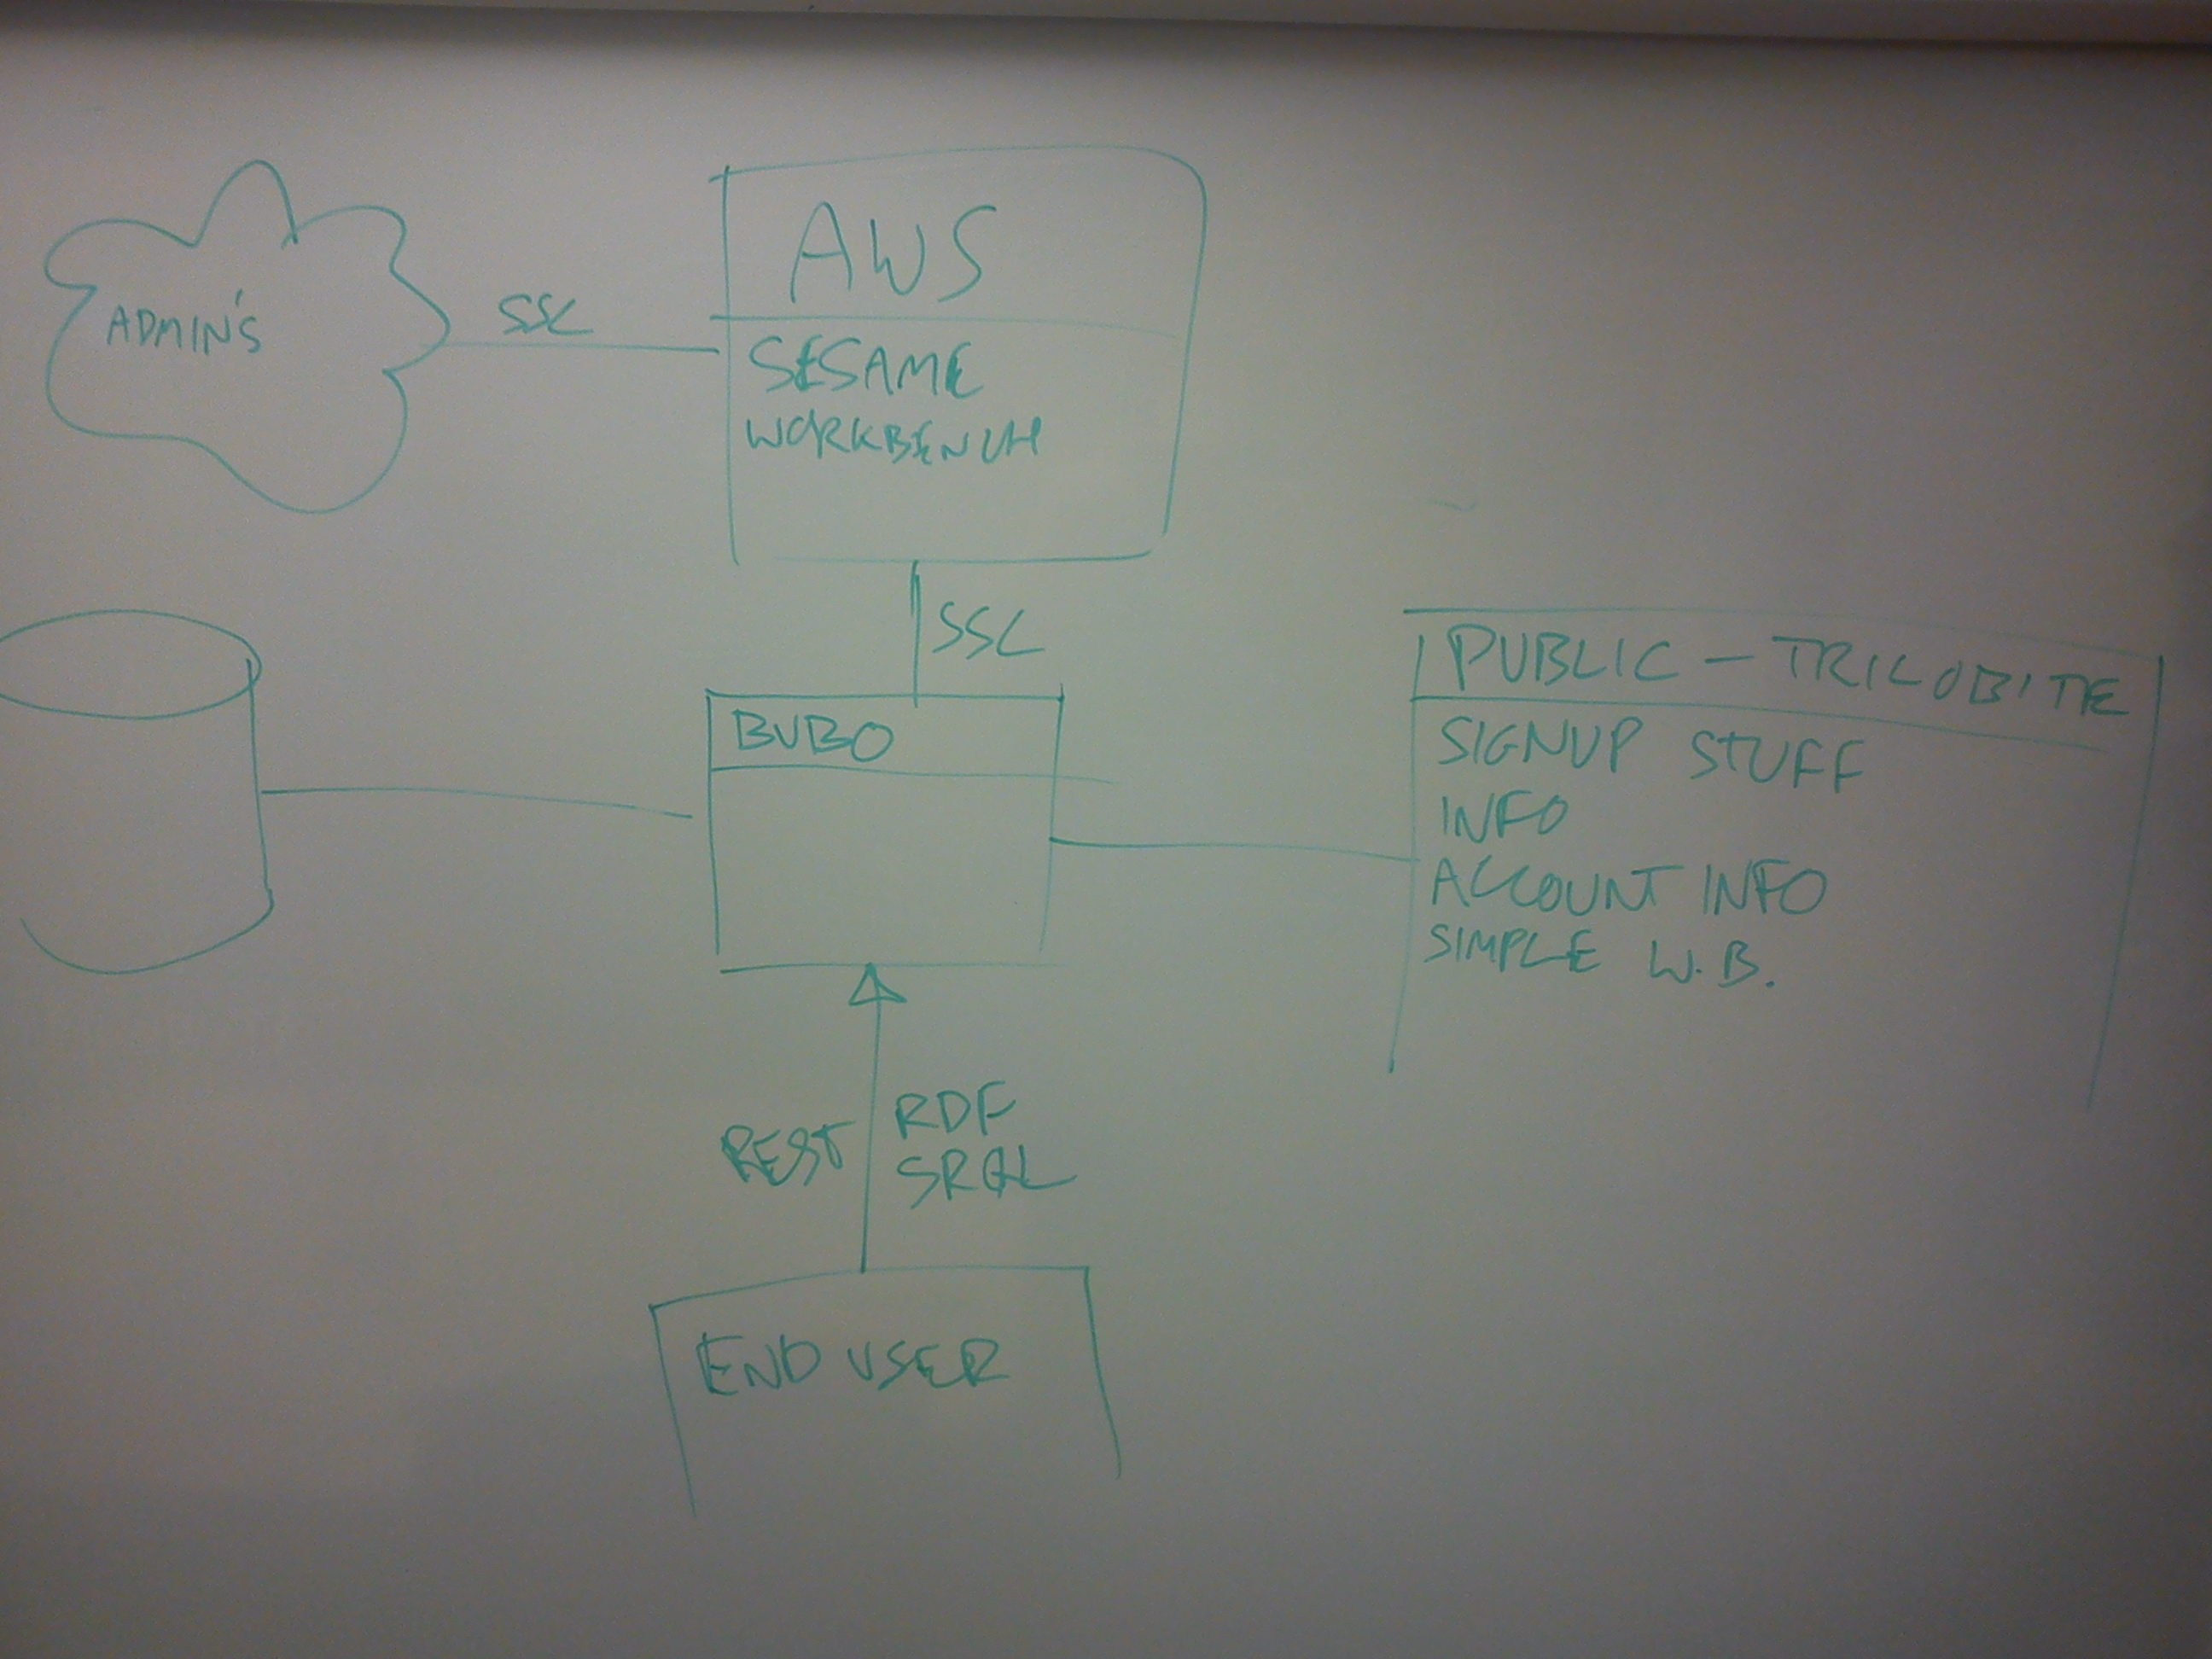 AWS
ADMIN'S
SSL
SESAME
WORKBENCH
SSL
PUBLIC - TRILOBITE
BUBO
SIGNUP STUFF
INFO
ACCOUNT INFO
SIMPLE W.B.
REST
RDF
SRQL
END USER